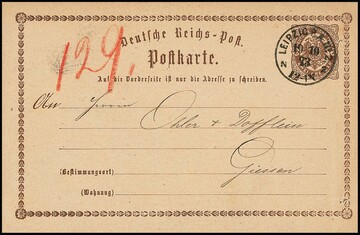 129.
Deutsche Reichs-Post.
Postkarte.
Auf die Vorderseite ist nur die Adresse zu schreiben.
LEIPZIG
19 10
12-1N
An Herren
Ohler & Dofflein
Giessen
(Bestimmungsort)
(Wohnung)